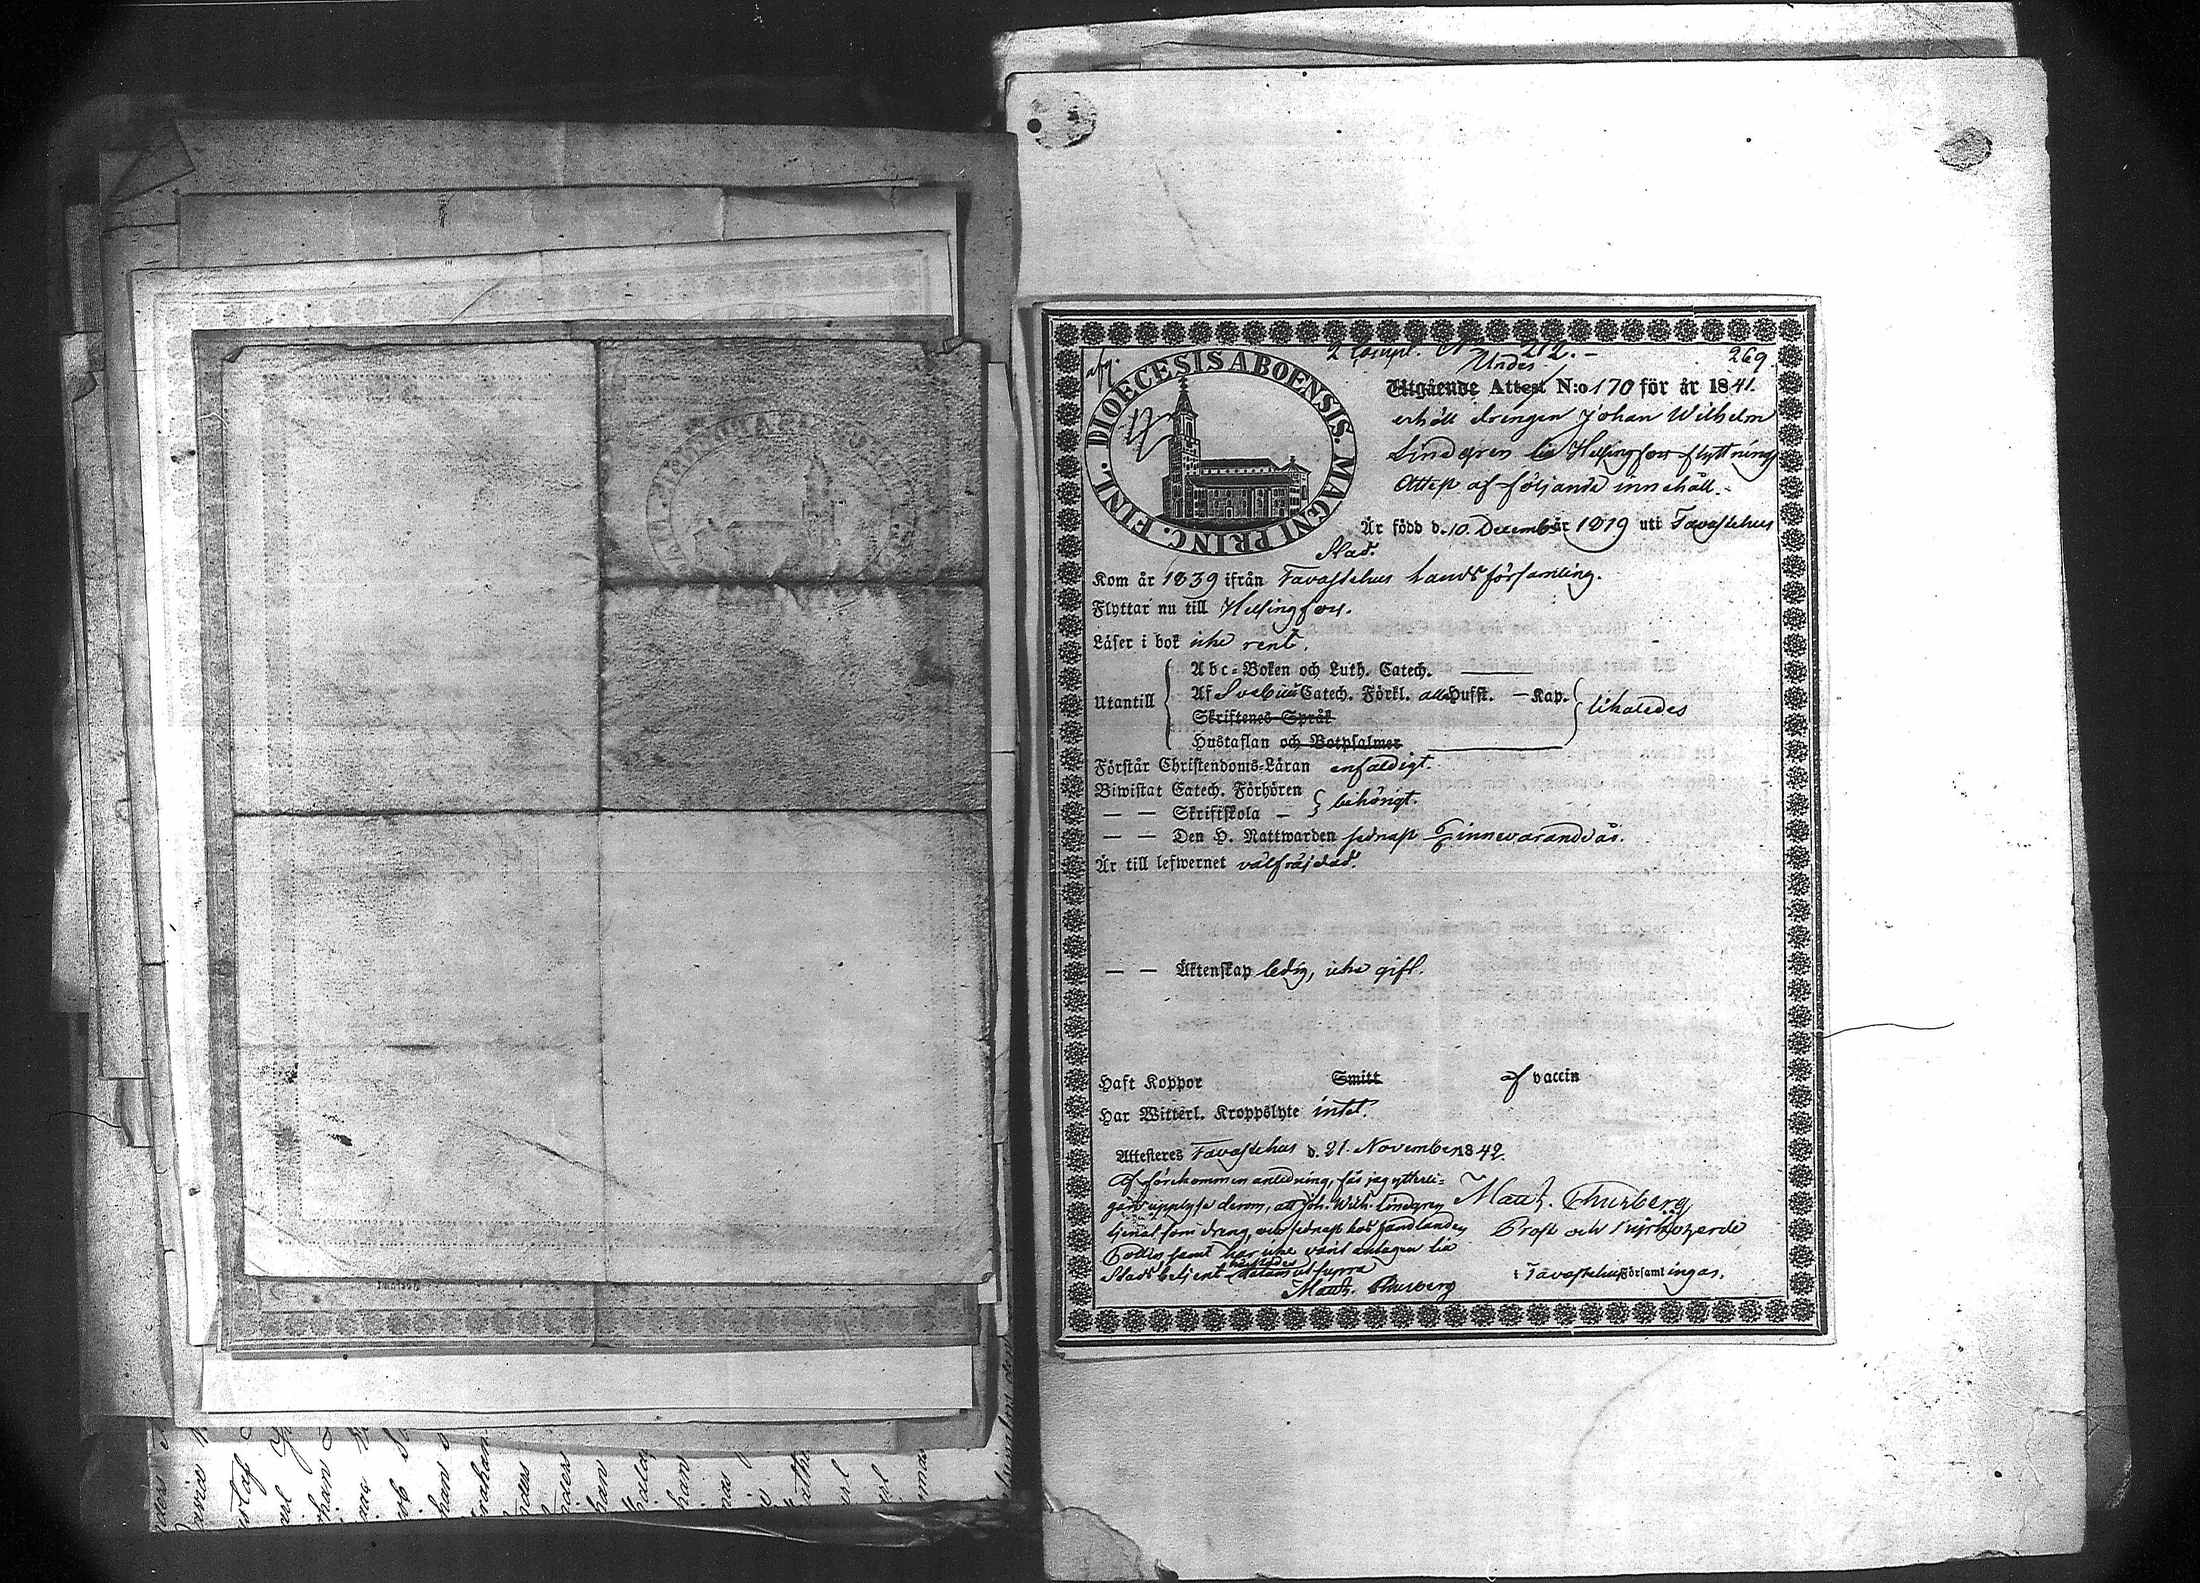 269.
2 Compl. N 212.
Under
FINL. DIOECESIS ABOENSIS. MAGNI PRINC.
Utgående Attest N:o 170 för år 1841.
erhöll drengen Johan Wilhelm
Lindgren till Helsingfors flyttnings
Attest af följande innehåll.
Är född d. 10. December år 1819 uti Tavastehus
Stad.
Kom år 1839 ifrån Tavastehus Landsförsamling.
Flyttar nu till Helsingfors.
Läser i bok icke rent.
Abc-Boken och Luth. Catech.
Utantill Af Svebilii Catech. Förkl. alla Hufst. — Kap. likaledes
Skriftenes Språk
Hustaflan och Botpsalmer
Förstår Christendoms-Läran enfaldigt.
Biwistat Catech. Förhören
— — Skriftskola — behörigt.
— — Den H. Nattwarden sednast innevarande år.
Är till lefwernet välfräjdad.
— — Äktenskap ledig, icke gift.
Haft Koppor Smitt af vaccin
Har Witterl. Kroppslyte intet.
Attesteres Tavastehus d. 21. November 1842.
Af förekommen anledning, får jag ytterli-
gare upplysa derom, att Joh. Wilh. Lindgren
tjenat som dreng, och sednast hos handlanden
samt har icke varit antagen till
Stadsbetjent
datum ut supra
Matth. Thurberg
Matth. Thurberg
Prost och Kyrkoherde
i Tavastehus Församlingar.